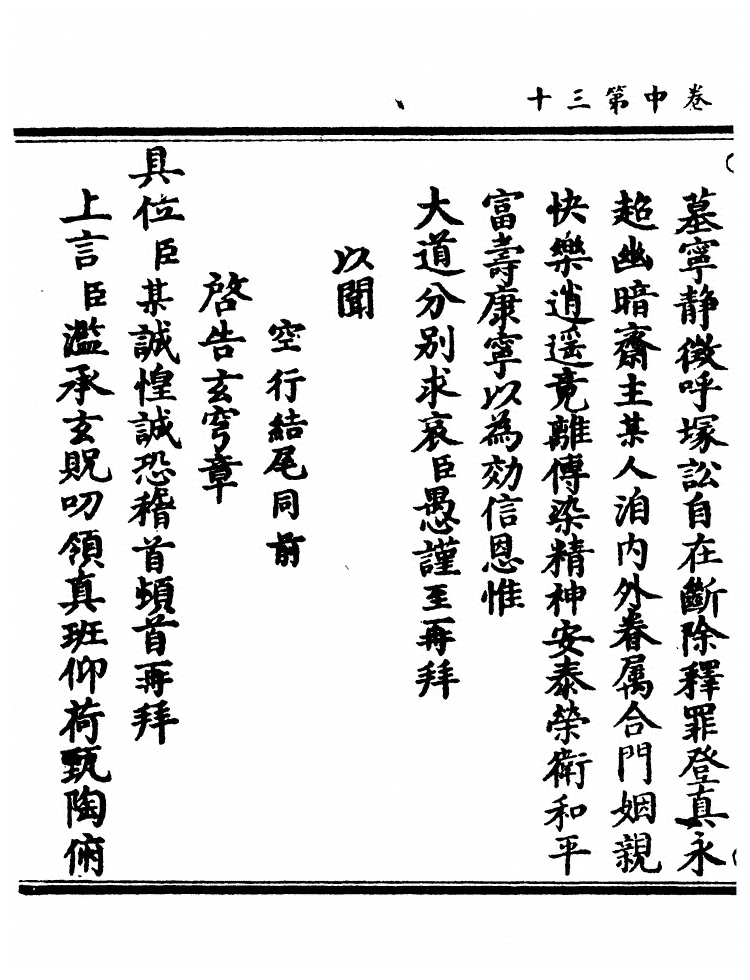 卷中第三十
墓寧静徵呼塚訟自在斷除釋罪登真永
超幽暗齋主某人洎内外眷属合門姻親
快樂逍遥竟離傳染精神安泰榮衛和平
富壽康寧以為効信恩惟
大道分别求哀臣愚謹至再拜
以聞
空行結尾同前
啓告玄穹章
具位臣某誠惶誠恐稽首頓首再拜
上言臣濫承玄貺叨領真班仰荷甄陶俯